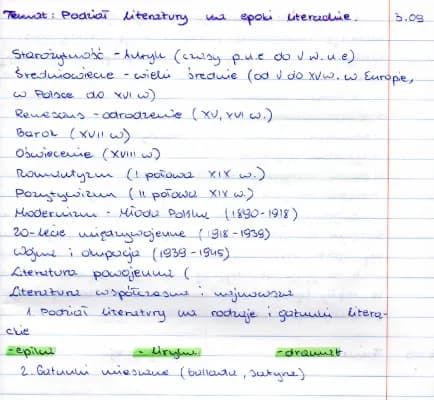 Temat: Podział literatury na epoki literackie. 3.09
Starożytność - Antyk (czasy p.n.e do V w. n.e)
Średniowiecze - wieki średnie (od V do XV w. w Europe,
w Polsce do XVI w)
Renesans - odrodzenie (XV, XVI w.)
Barok (XVII w)
Oświecenie (XVIII w)
Romantyzm (I połowa XIX w.)
Pozytywizm (II połowa XIX w.)
Modernizm - Młoda Polska (1890-1918)
20-lecie międzywojenne (1918-1939)
Wojna i okupacja (1939-1945)
Literatura powojenna (
Literatura współczesna i najnowsza
1. Podział literatury na rodzaje i gatunki litera-
ckie
-epika - liryka -dramat
2. Gatunki mieszane (ballada, satyra)